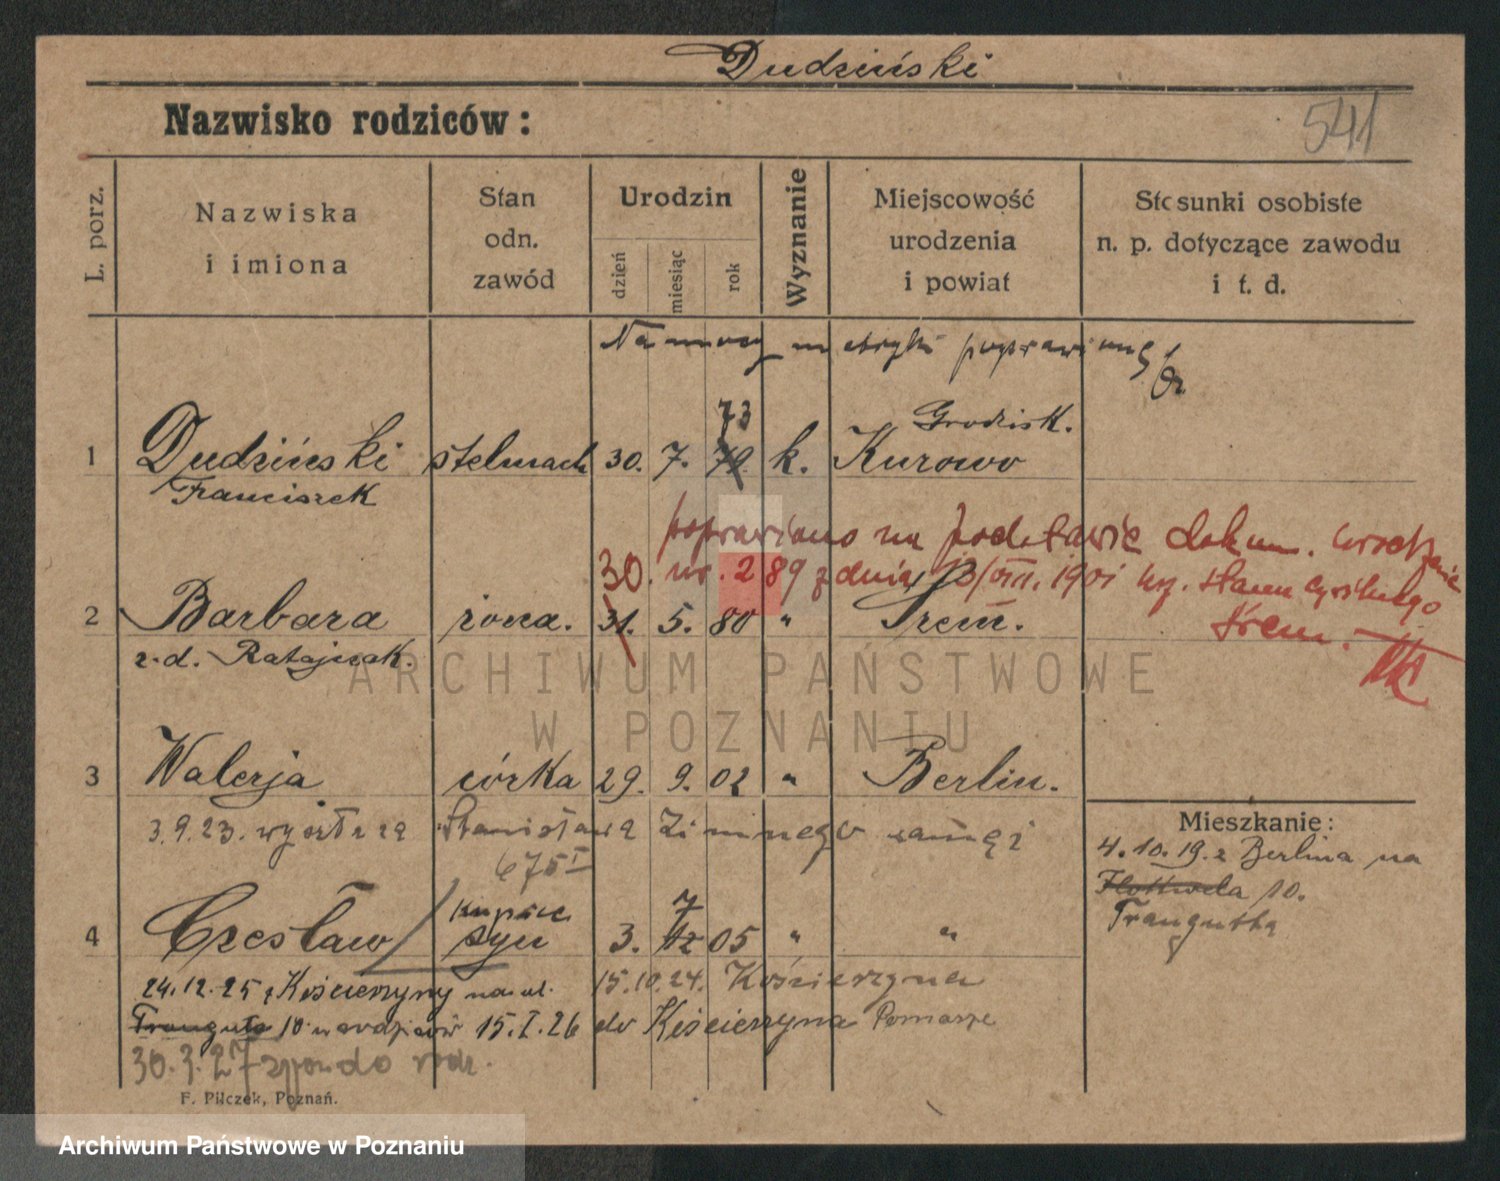 Dudziński
Nazwisko rodziców:
541
L. porz.
Nazwiska
i imiona
Stan
odn.
zawód
Urodzin
dzień
miesiąc
rok
Wyznanie
Miejscowość
urodzenia
i powiat
Stosunki osobiste
n. p. dotyczące zawodu
i t. d.
Na mocy metryki poprawiono
73
Grodzisk.
1 Dudziński stelmach 30. 7. 79. k. Kurowo
Franciszek
poprawiono na podstawie dokum. urodzenia
30. nr. 289 z dnia 1901 stanu cywilnego
2 Barbara żona. 31. 5. 80 " Śrem.
Śrem.
z. d. Ratajczak.
ARCHIWUM PAŃSTWOWE
W POZNANIU
3 Walerja córka 29. 9. 02 " Berlin.
3.9.23. wyszła za Stanisława Zimnego zamęż
675 I
Mieszkanie:
4.10.19. z Berlina na
Flottwela 10.
Traugutta
kupiec 7
4 Czesław syn 3. 12 05 " "
24.12.25 z Kościerzyny na ul. 15.10.24. Kościerzyna
Traugutta 10 u rodziców 15.I.26 do Kościerzyna Pomorze
30.3.27 do rodz.
F. Pilczek, Poznań.
Archiwum Państwowe w Poznaniu